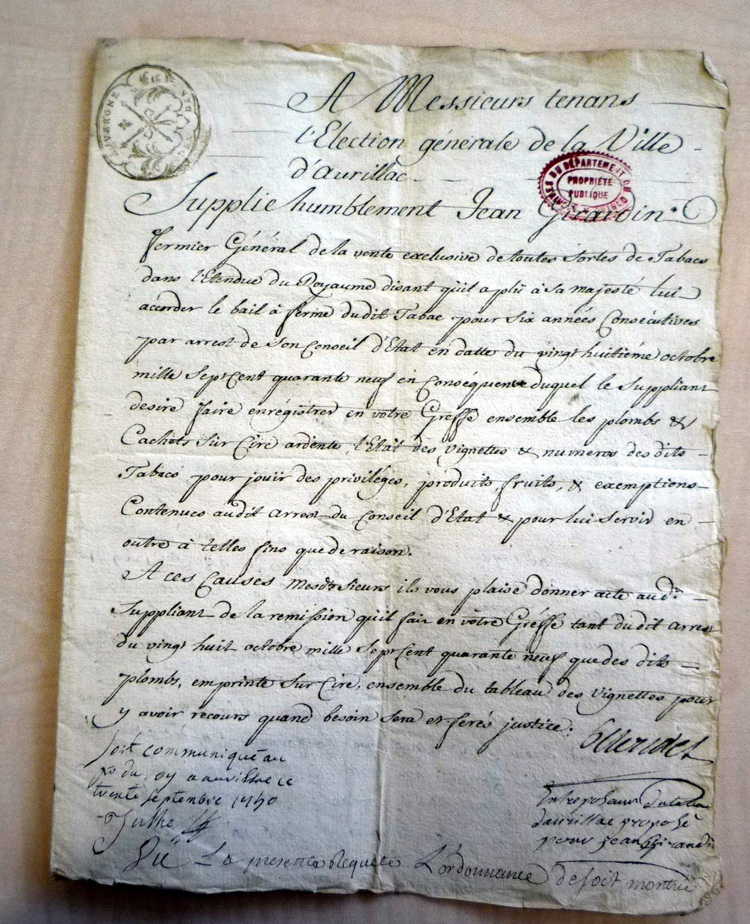 AUVERGNE
A Messieurs tenans
l'Election générale de la Ville
d'aurillac
DU DÉPARTEMENT DU
PROPRIÉTÉ
PUBLIQUE
Supplie humblement Jean Girardin
fermier Général de la vente exclusive de toutes Sortes de Tabacs
dans l'Etendue du Royaume disant qu'il a plû à Sa majesté lui
accorder le bail à ferme dudit Tabac pour six années Consécutives
par arrest de Son Conseil d'Etat en datte du vingt huitiéme octobre
mille Sept Cent quarante neuf en Conséquence duquel le Suppliant
desire faire enrégistrer en vôtre Greffe ensemble les plombs &
Cachets Sur Cire ardente, l'Etat des vignettes & numeros des dits
Tabacs pour jouir des privilèges, produits fruits, & exemptions
Contenues audit arrest du Conseil d'Etat & pour lui Servir en
outre à telles fins que de raison.
A ces Causes Messieurs ils vous plaise donner acte aud.
Suppliant de la remission qu'il fait en vôtre Gréffe tant dudit arrest
du vingt huit octobre mille Sept Cent quarante neuf que des dits
plombs, emprinte Sur Cire, ensemble du tableau des vignettes pour
y avoir recours quand besoin Sera et ferés justice.
Soit communiqué au
du Roy a aurillac ce
trente Septembre 1750
Entreposeur du tabac
d'aurillac preposé
pour jean girardin
Vu La presente Requete L'ordonnance de soit montré